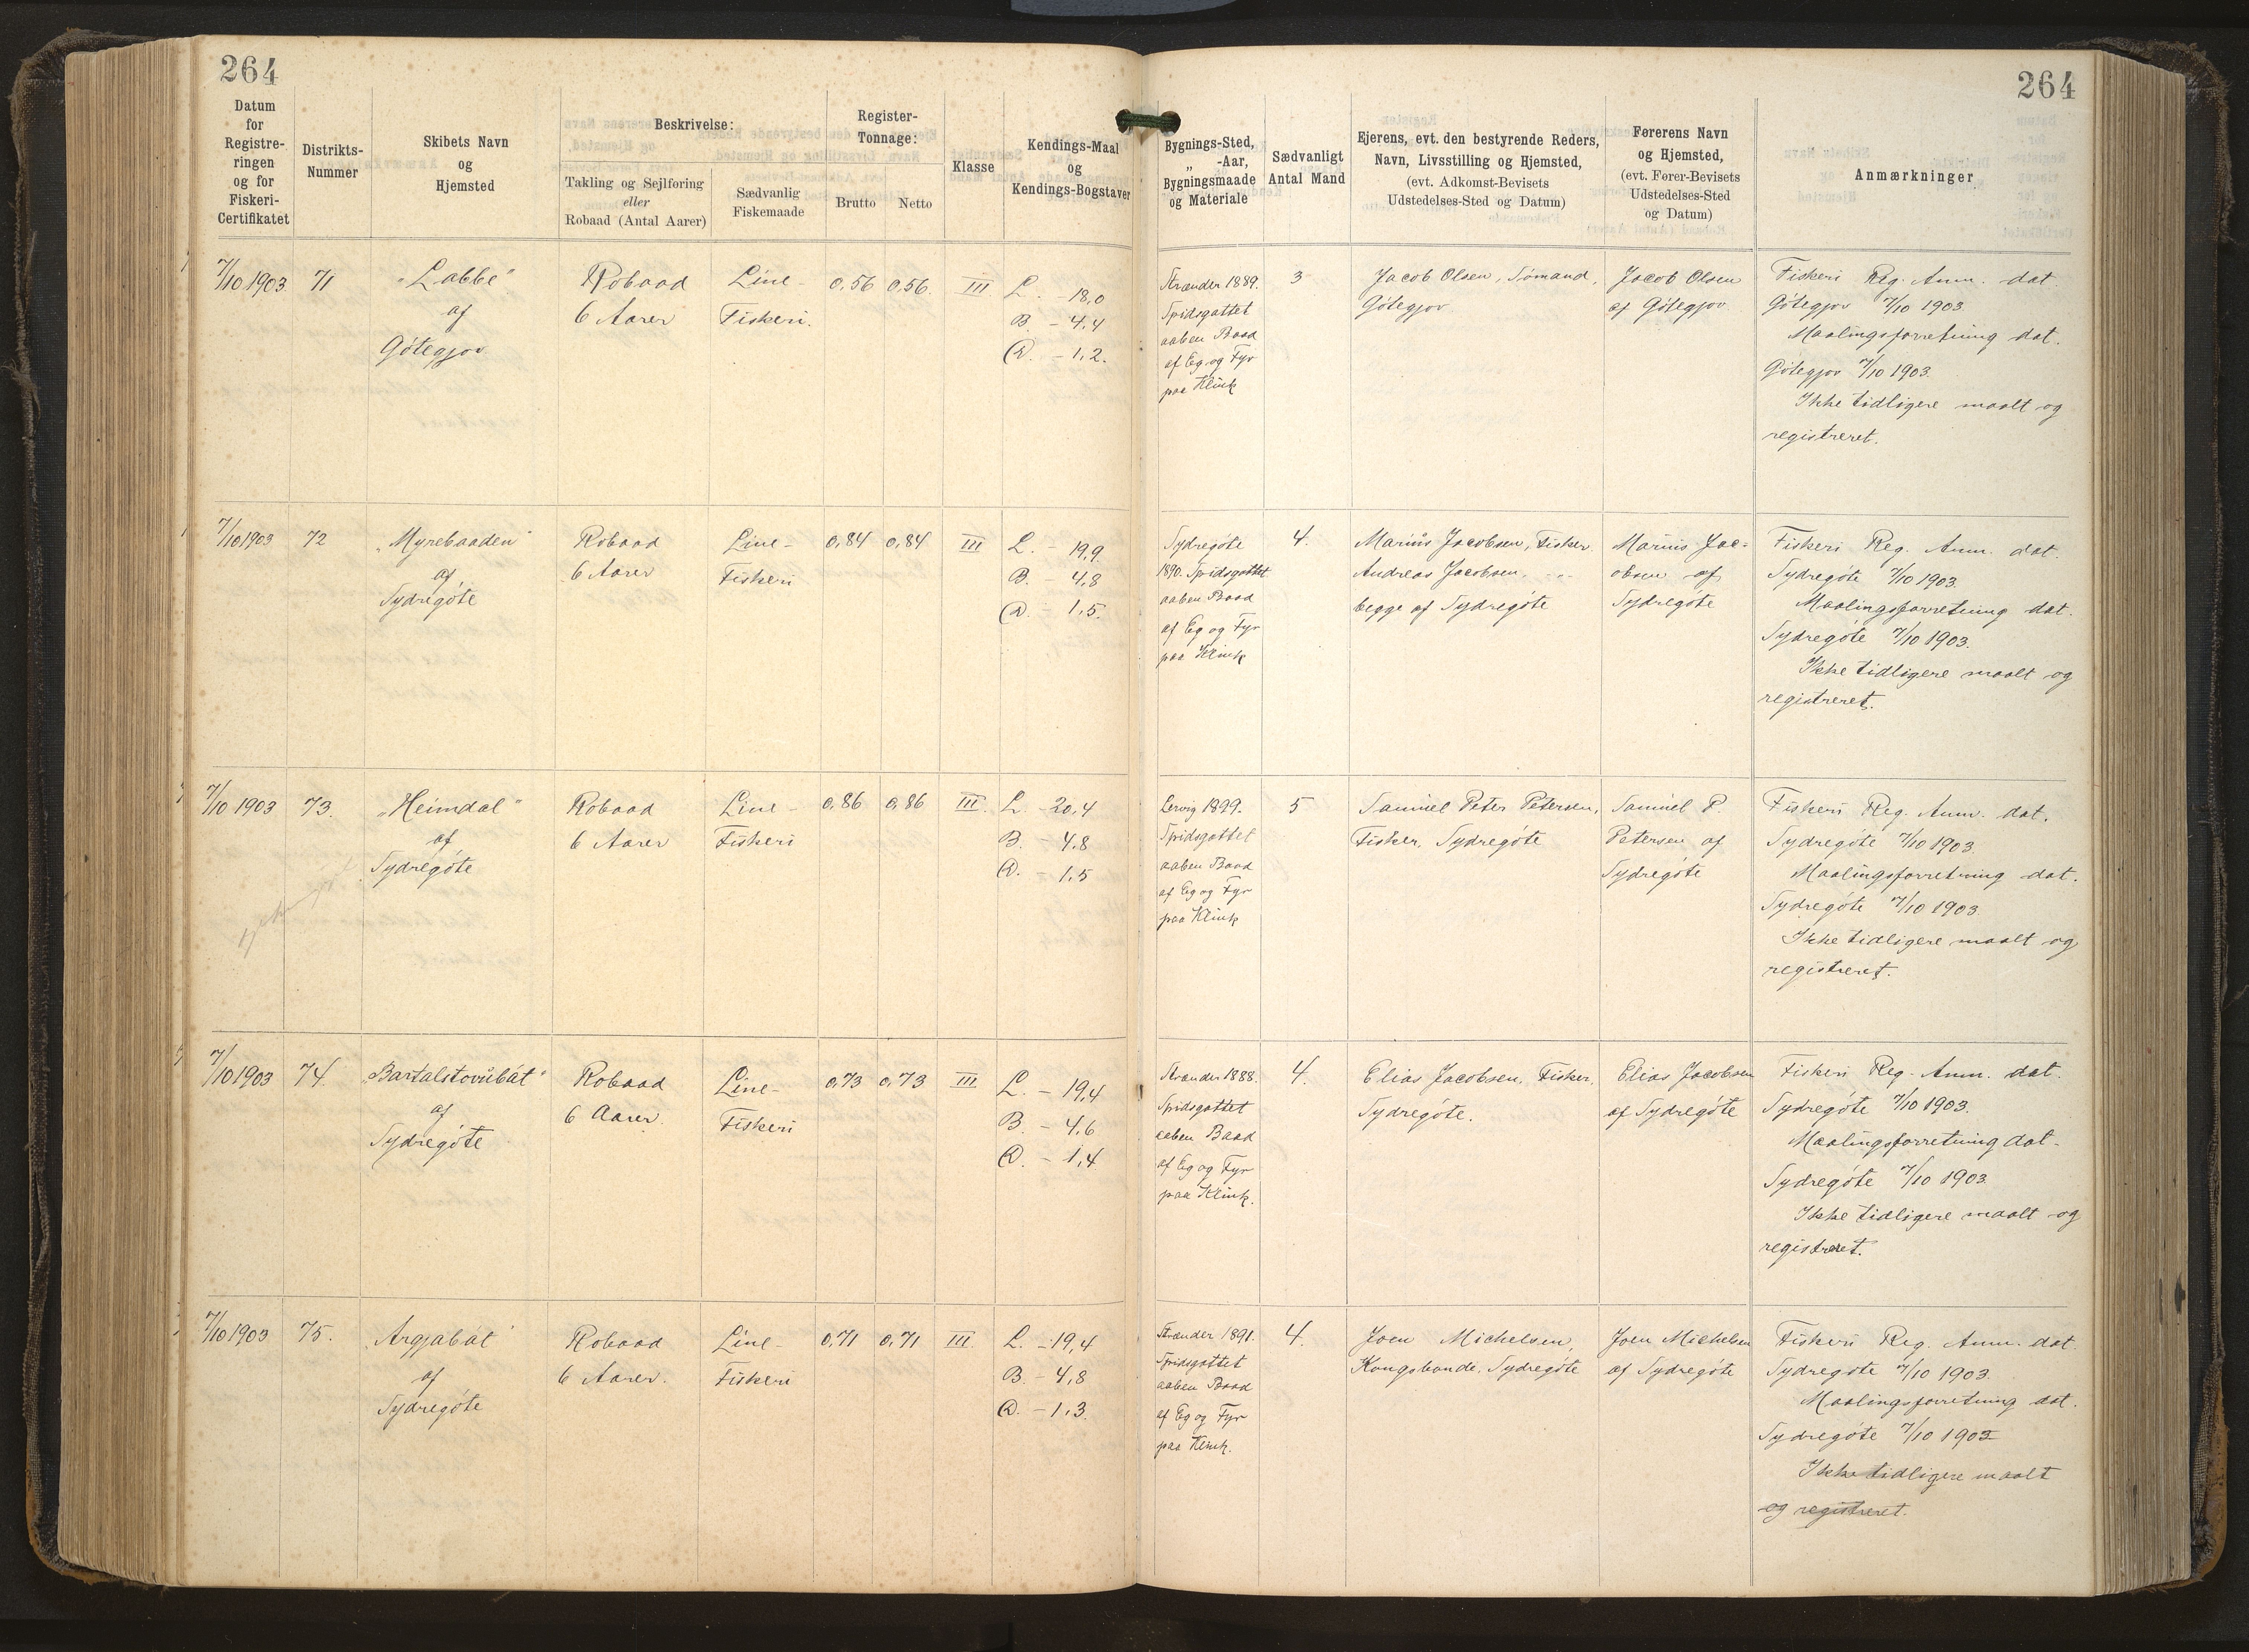 264
264
Datum
for
Registre-
ringen
og for
Fiskeri-
Certifikatet
Distrikts-
Nummer
Skibets Navn
og
Hjemsted
Beskrivelse:
Takling og Sejlføring
eller
Robaad (Antal Aarer)
Sædvanlig
Fiskemaade
Register-
Tonnage:
Brutto
Netto
Klasse
Kendings-Maal
og
Kendings-Bogstaver
Bygnings-Sted,
„ -Aar,
Bygningsmaade
og Materiale
Sædvanligt
Antal Mand
Ejerens, evt. den bestyrende Reders,
Navn, Livsstilling og Hjemsted,
(evt. Adkomst-Bevisets
Udstedelses-Sted og Datum)
Førerens Navn
og Hjemsted,
(evt. Fører-Bevisets
Udstedelses-Sted
og Datum)
Anmærkninger
7/10 1903.
71
"Labbe"
af
Götegjov
Robaad
6 Aarer
Line-
Fiskeri.
0,56
0,56.
III
L. - 18,0
B. - 4,4
D. - 1,2.
Strænder 1889.
Spidsgattet
aaben Baad
af Eg og Fyr
paa Klink
3
Jacob Olsen, Sømand,
Götegjov
Jacob Olsen
af Götegjov
Fiskeri Reg. Anm. dat.
Götegjov 7/10 1903.
Maalingsforretning dat.
Götegjov 7/10 1903.
Ikke tidligere maalt og
registreret.
7/10 1903
72
"Myrebaaden"
af
Sydregöte
Robaad
6 Aarer
Line-
Fiskeri
0,84
0,84
III
L. - 19,9
B. - 4,8
D. - 1,5.
Sydregöte
1890. Spidsgattet
aaben Baad
af Eg og Fyr
paa Klink
4.
Marius Jacobsen, Fisker
Andreas Jacobsen, -"-
begge af Sydregöte
Marius Jac-
obsen af
Sydregöte
Fiskeri Reg. Anm. dat.
Sydregöte 7/10 1903.
Maalingsforretning dat.
Sydregöte 7/10 1903.
Ikke tidligere maalt og
registreret.
7/10 1903
73.
"Heimdal"
af
Sydregöte
Robaad
6 Aarer
Line-
Fiskeri
0,86
0,86
III.
L. - 20,4
B. - 4,8
D. - 1,5
Lervig 1899.
Spidsgattet
aaben Baad
af Eg og Fyr
paa Klink
5
Samuel Peter Petersen,
Fisker, Sydregöte
Samuel P.
Petersen af
Sydregöte
Fiskeri Reg. Anm. dat.
Sydregöte 7/10 1903.
Maalingsforretning dat.
Sydregöte 7/10 1903.
Ikke tidligere maalt og
registreret.
7/10 1903
74.
"Bartalstovubát"
af
Sydregöte
Robaad
6 Aarer.
Line-
Fiskeri
0,73
0,73
III
L. - 19,4
B. - 4,6
D. - 1,4
Strænder 1888.
Spidsgattet
aaben Baad
af Eg og Fyr
paa Klink.
4.
Elias Jacobsen, Fisker,
Sydregöte.
Elias Jacobsen
af Sydregöte
Fiskeri Reg. Anm. dat.
Sydregöte 7/10 1903.
Maalingsforretning dat.
Sydregöte 7/10 1903.
Ikke tidligere maalt og
registreret.
7/10 1903
75.
"Argjabát"
af
Sydregöte
Robaad
6 Aarer.
Line-
Fiskeri
0,71
0,71
III.
L. - 19,4
B. - 4,8
D. - 1,3.
Strænder 1891.
Spidsgattet
aaben Baad
af Eg og Fyr
paa Klink.
4.
Joen Michelsen,
Kongsbonde, Sydregöte
Joen Michelsen
af Sydregöte
Fiskeri Reg. Anm. dat.
Sydregöte 7/10 1903.
Maalingsforretning dat.
Sydregöte 7/10 1903
Ikke tidligere maalt
og registreret.